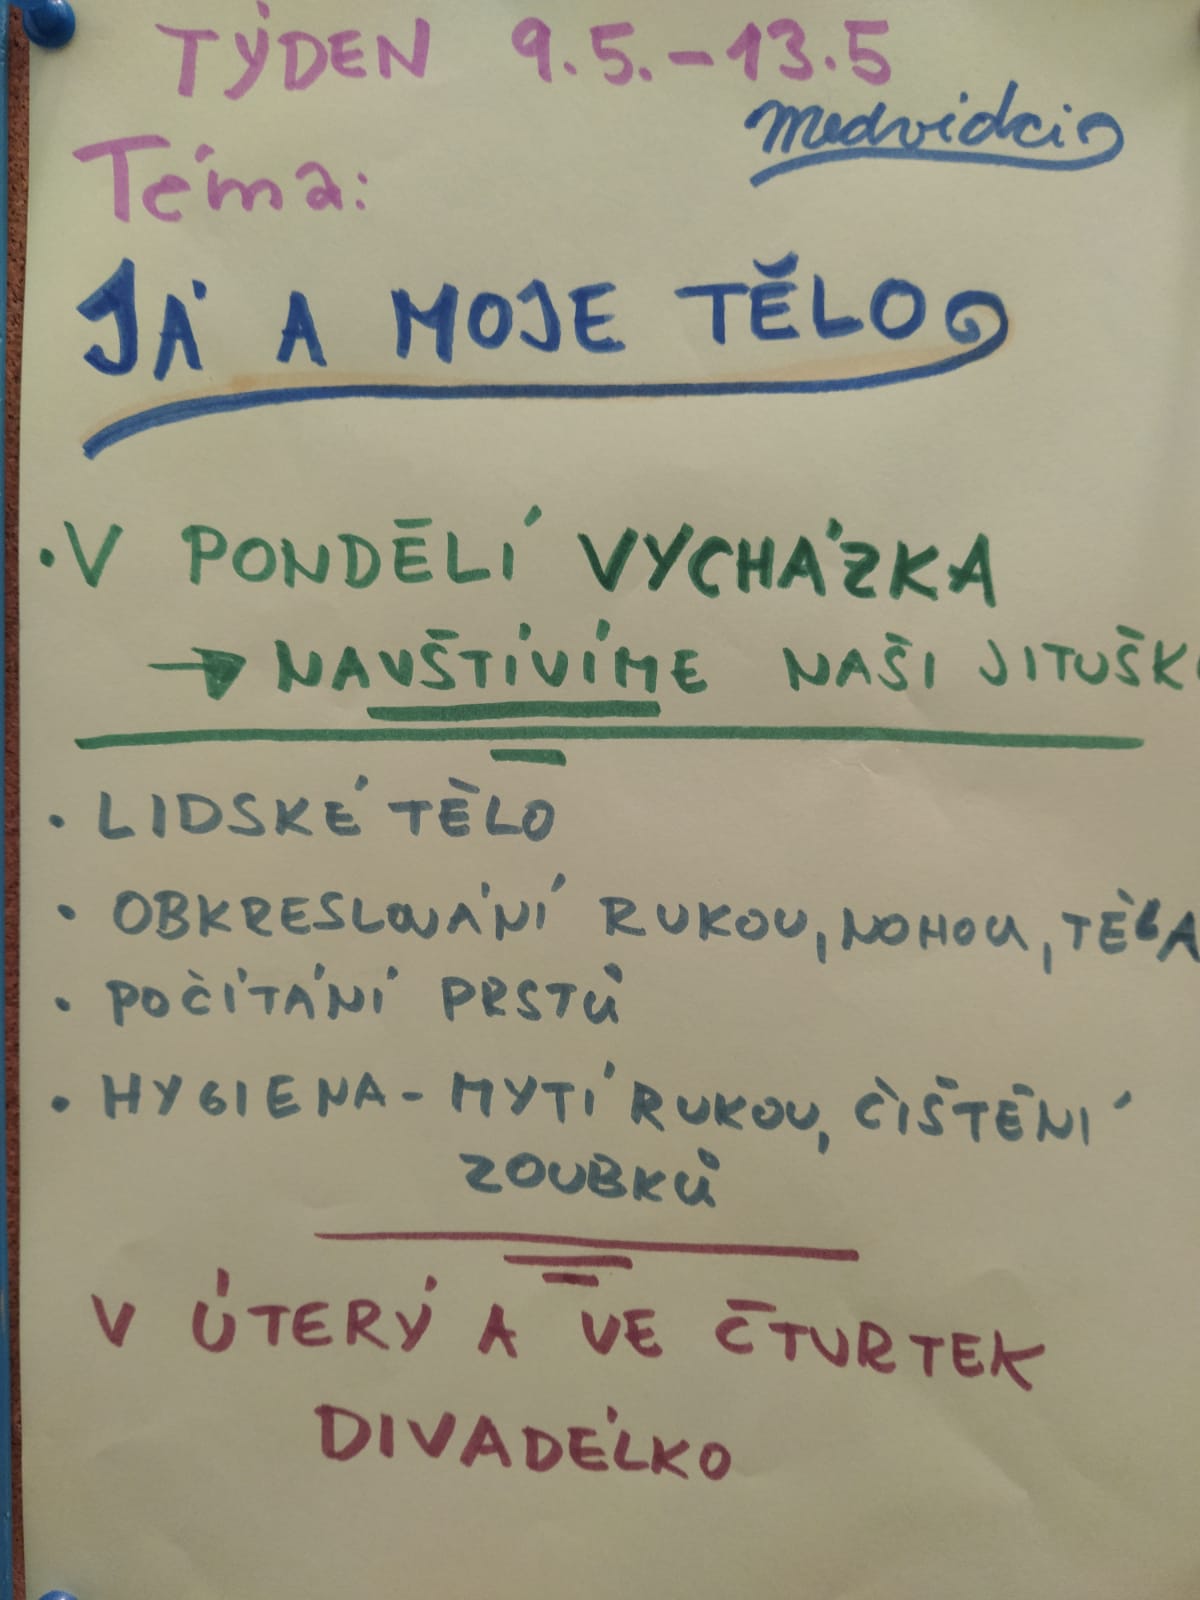 TÝDEN 9.5.-13.5
Medvídci
Téma:
JÁ A MOJE TĚLO
• V PONDĚLÍ VYCHÁZKA
→ NAVŠTÍVÍME NAŠI JITUŠK
• LIDSKÉ TĚLO
• OBKRESLOVÁNÍ RUKOU, NOHOU, TĚLA
• POČÍTÁNÍ PRSTŮ
• HYGIENA - MYTÍ RUKOU, ČIŠTĚNÍ
ZOUBKŮ
V ÚTERÝ A VE ČTVRTEK
DIVADÉLKO